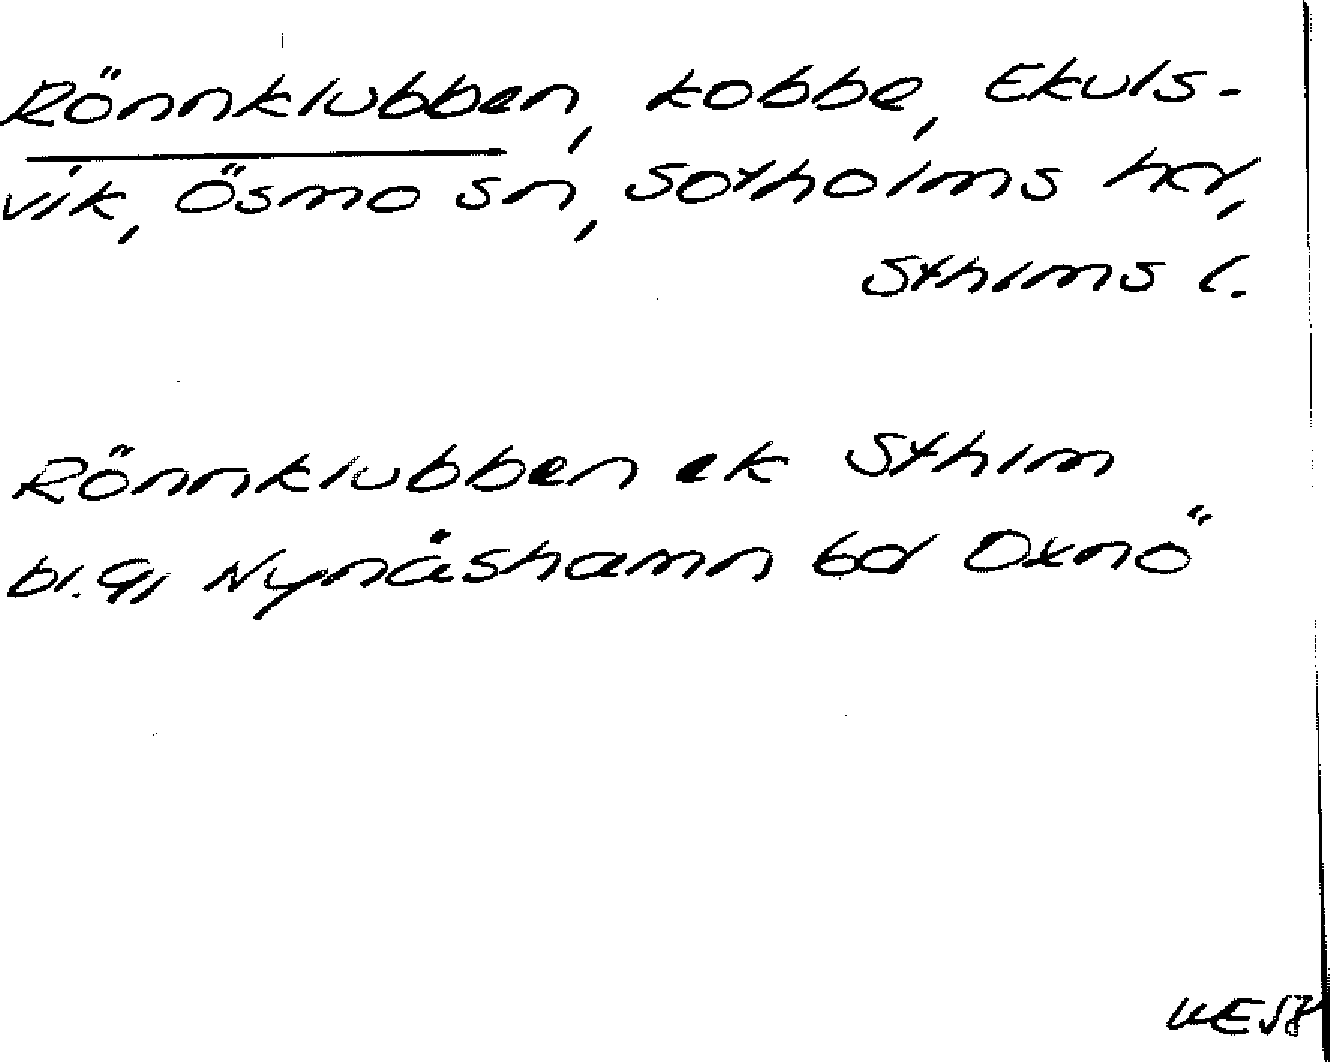 Rönnklubben, kobbe, Ekuls-
vik, Ösmo sn, Sotholms hd,
Sthlms l.
Rönnklubben ek Sthlm
bl. 9, Nynäshamn bd Oxnö